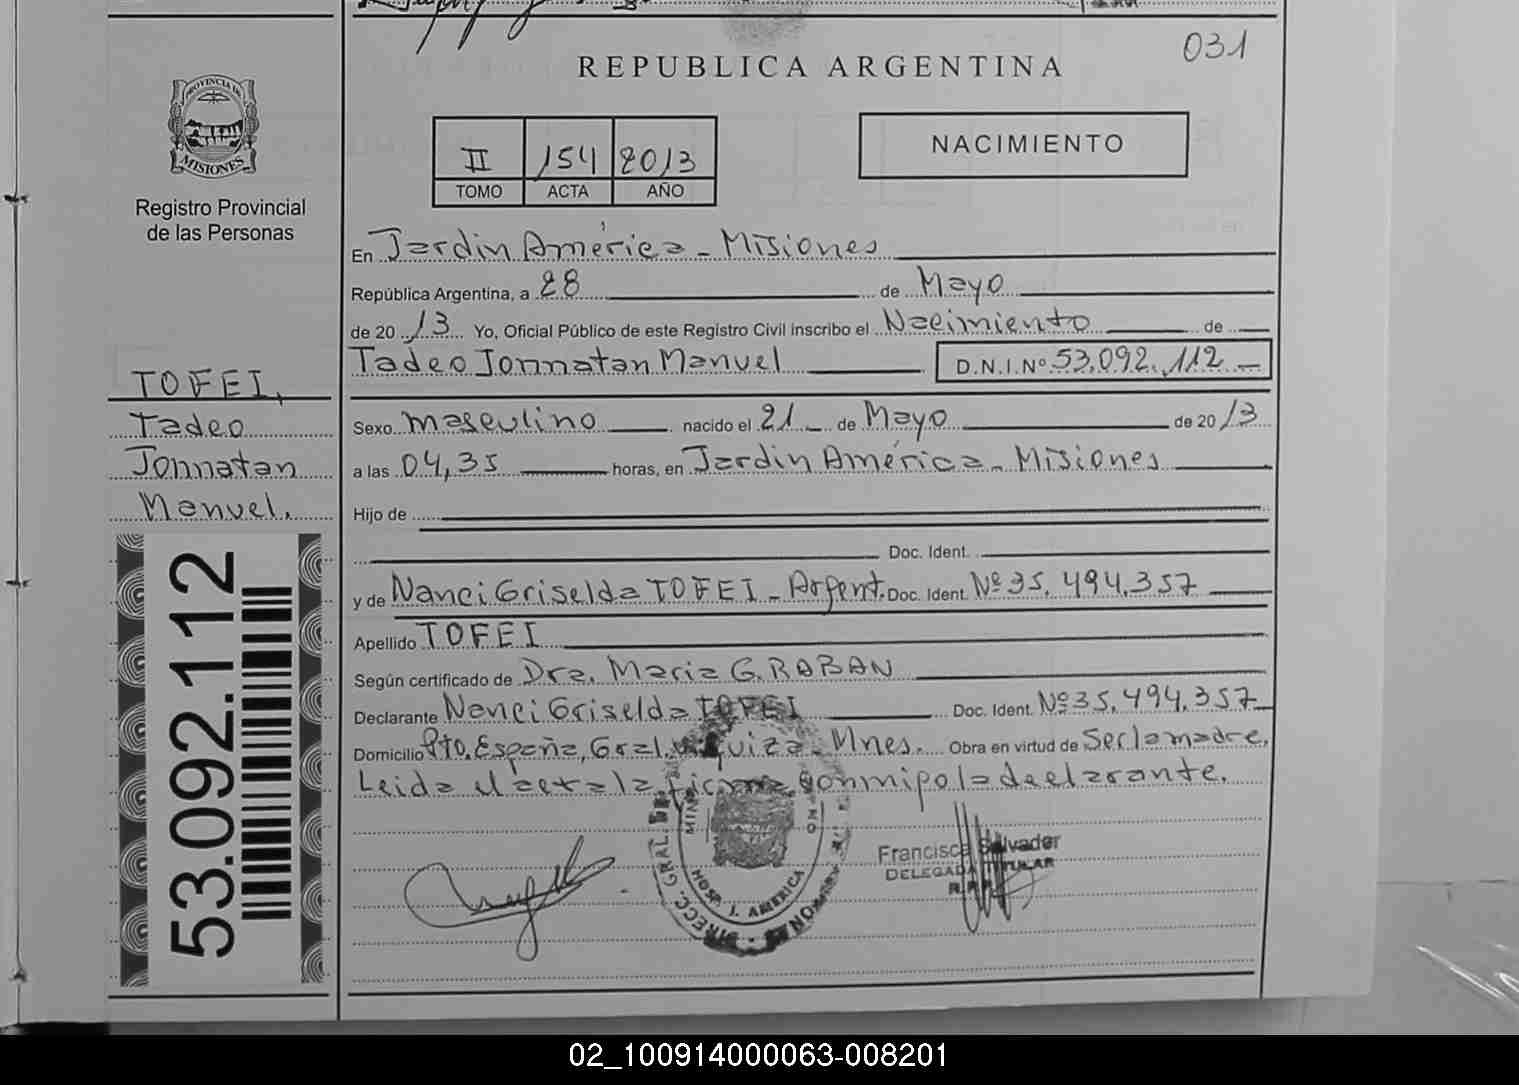 031
REPUBLICA ARGENTINA
PROVINCIA DE
MISIONES
Registro Provincial
de las Personas
II 154 2013
TOMO ACTA AÑO
NACIMIENTO
En Jardin América - Misiones
República Argentina, a 28 de Mayo
de 2013 Yo, Oficial Público de este Registro Civil inscribo el Nacimiento de
Tadeo Jonnatan Manuel D.N.I.Nº 53.092.112
TOFEI,
Tadeo
Jonnatan
Manuel.
Sexo masculino nacido el 21 de Mayo de 2013
a las 04,35 horas, en Jardin América - Misiones
Hijo de
Doc. Ident.
y de Nanci Griselda TOFEI - Argent. Doc. Ident. Nº 35.494.357
Apellido TOFEI
Según certificado de Dra. Maria G. RABAN
Declarante Nanci Griselda TOFEI Doc. Ident. Nº 35.494.357
Domicilio Pto. España, Gral. Urquiza - Mnes. Obra en virtud de Ser la madre.
Leida el acta la firma conmigo la declarante.
53.092.112
DIRECC. GRAL. DE
HOSP. J. AMERICA
Francisca Salvador
DELEGADA TITULAR
R.P.P.
02_100914000063-008201